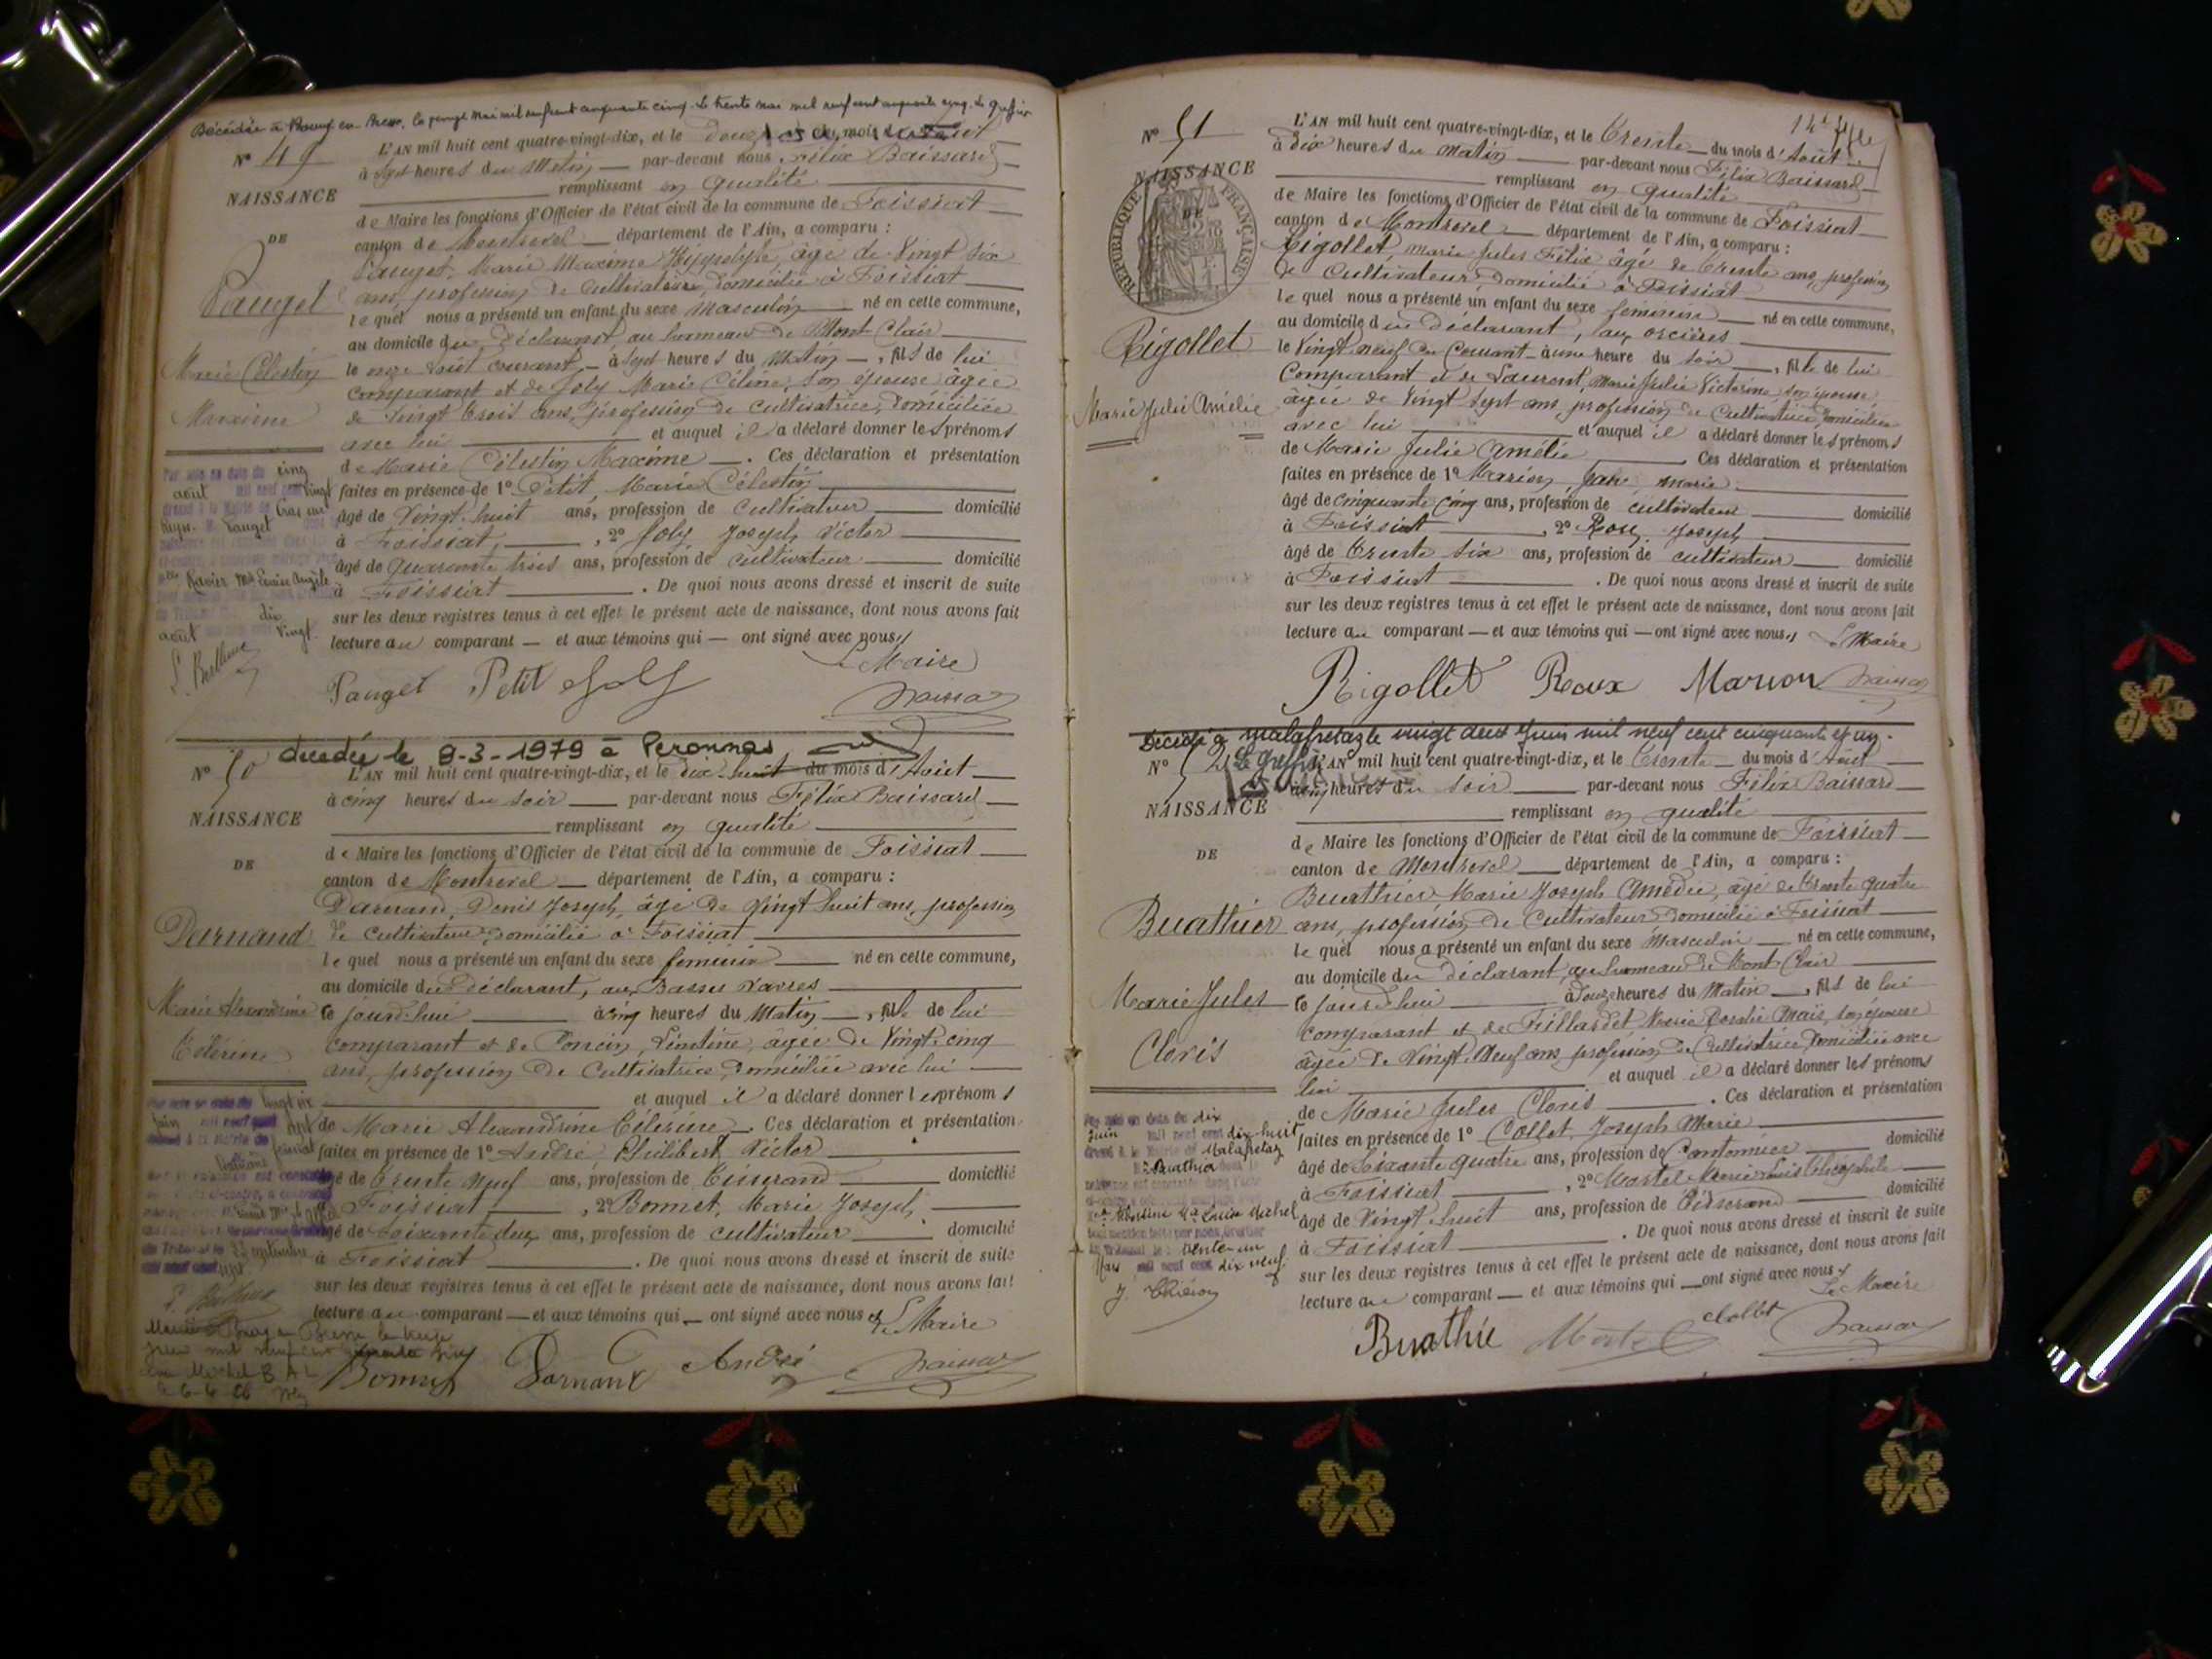 Décédée à Bourg-en-Bresse, le mai mil neuf cent cinquante cinq. Le trente mai mil neuf cent cinquante cinq. Le Greffier
N° 49
NAISSANCE
DE
Pauget
Marie Célestin
Maxime
L'AN mil huit cent quatre-vingt-dix, et le douze du mois d'
à sept heures du Matin par-devant nous Félix Baissard
remplissant en qualité
de Maire les fonctions d'Officier de l'état civil de la commune de Foissiat
canton de Montrevel département de l'Ain, a comparu :
Pauget, Marie Maxime Hippolyte, âgé de Vingt six
ans, profession de Cultivateur, domicilié à Foissiat
lequel nous a présenté un enfant du sexe Masculin né en cette commune,
au domicile du déclarant, au hameau de Mont Clair
le onze Août courant à sept heures du Matin, fils de lui
comparant et de Joly Marie Céline, son épouse âgée
de Vingt trois ans, profession de cultivatrice, domiciliée
avec lui et auquel il a déclaré donner les prénoms
de Marie Célestin Maxime. Ces déclaration et présentation
faites en présence de 1° Petit, Marie Célestin
âgé de Vingt-huit ans, profession de Cultivateur domicilié
à Foissiat, 2° Joly Joseph Victor
âgé de Quarante trois ans, profession de Cultivateur domicilié
à Foissiat. De quoi nous avons dressé et inscrit de suite
sur les deux registres tenus à cet effet le présent acte de naissance, dont nous avons fait
lecture au comparant et aux témoins qui ont signé avec nous
Le Maire
Pauget Petit Joly
Baissard
cinq
août vingt
Pauget
Ravier Louise Angèle
dix
août vingt
N° 50
décédée le 9-3-1979 à Peronnas
NAISSANCE
DE
Darnand
Marie Alexandrine
Célérine
L'AN mil huit cent quatre-vingt-dix, et le dix-huit du mois d'Août
à cinq heures du Soir par-devant nous Félix Baissard
remplissant en qualité
de Maire les fonctions d'Officier de l'état civil de la commune de Foissiat
canton de Montrevel département de l'Ain, a comparu :
Darnand, Denis Joseph, âgé de Vingt huit ans, profession
de cultivateur domicilié à Foissiat
lequel nous a présenté un enfant du sexe féminin né en cette commune,
au domicile du déclarant, aux Basses Vavres
ce jourd'hui à cinq heures du Matin, fille de lui
comparant et de Poncin, Léontine, âgée de Vingt-cinq
ans, profession de Cultivatrice, domiciliée avec lui
et auquel il a déclaré donner les prénoms
de Marie Alexandrine Célérine. Ces déclaration et présentation
faites en présence de 1° André, Philibert Victor
âgé de Trente neuf ans, profession de Tisserand domicilié
à Foissiat, 2° Bonnet, Marie Joseph
âgé de Soixante deux ans, profession de cultivateur domicilié
à Foissiat. De quoi nous avons dressé et inscrit de suite
sur les deux registres tenus à cet effet le présent acte de naissance, dont nous avons fait
lecture au comparant et aux témoins qui ont signé avec nous
Le Maire
Bonnet Darnand André Baissard
N° 51
NAISSANCE
DE
RÉPUBLIQUE FRANÇAISE
Rigollet
Marie Julie Amélie
L'AN mil huit cent quatre-vingt-dix, et le Trente du mois d'Août
à dix heures du Matin par-devant nous Félix Baissard
remplissant en qualité
de Maire les fonctions d'Officier de l'état civil de la commune de Foissiat
canton de Montrevel département de l'Ain, a comparu :
Rigollet, Marie Jules Félix âgé de Trente ans, profession
de Cultivateur, domicilié à Foissiat
lequel nous a présenté un enfant du sexe féminin né en cette commune,
au domicile du déclarant, aux orcières
le Vingt neuf du Courant à une heure du soir, fille de lui
Comparant et de Laurent, Marie Julie Victorine son épouse
âgée de Vingt sept ans, profession de Cultivatrice domiciliée
avec lui et auquel il a déclaré donner les prénoms
de Marie Julie Amélie. Ces déclaration et présentation
faites en présence de 1° Marion, Jane Marie
âgé de cinquante cinq ans, profession de cultivateur domicilié
à Foissiat, 2° Roux Joseph
âgé de Trente Six ans, profession de cultivateur domicilié
à Foissiat. De quoi nous avons dressé et inscrit de suite
sur les deux registres tenus à cet effet le présent acte de naissance, dont nous avons fait
lecture au comparant et aux témoins qui ont signé avec nous, Le Maire
Rigollet Roux Marion Baissard
Décédé à Malafretaz le vingt deux Juin mil neuf cent cinquante et un.
Le Greffier
N° 52
NAISSANCE
DE
Buathier
Marie Jules
Cloris
L'AN mil huit cent quatre-vingt-dix, et le Trente du mois d'Août
à cinq heures du soir par-devant nous Félix Baissard
remplissant en qualité
de Maire les fonctions d'Officier de l'état civil de la commune de Foissiat
canton de Montrevel département de l'Ain, a comparu :
Buathier Marie Joseph Amédée, âgé de Trente quatre
ans, profession de Cultivateur domicilié à Foissiat
lequel nous a présenté un enfant du sexe Masculin né en cette commune,
au domicile du déclarant, au hameau de Mont Clair
ce jourd'hui à douze heures du Matin, fils de lui
comparant et de Fillardet, Marie Rosalie Anaïs, son épouse
âgée de Vingt-Neuf ans, profession de Cultivatrice, domiciliée avec
lui et auquel il a déclaré donner les prénoms
de Marie Jules Cloris. Ces déclaration et présentation
faites en présence de 1° Collet, Joseph Marie
âgé de Soixante quatre ans, profession de Cantonnier domicilié
à Foissiat, 2° Martel Marie Louis
âgé de Vingt huit ans, profession de Tisserand domicilié
à Foissiat. De quoi nous avons dressé et inscrit de suite
sur les deux registres tenus à cet effet le présent acte de naissance, dont nous avons fait
lecture au comparant et aux témoins qui ont signé avec nous
Le Maire
Buathier Collet Baissard
dix
Juin mil neuf cent dix-huit
Malafretaz
Buathier
Louise Michel
trente-un
Mars mil neuf cent dix neuf